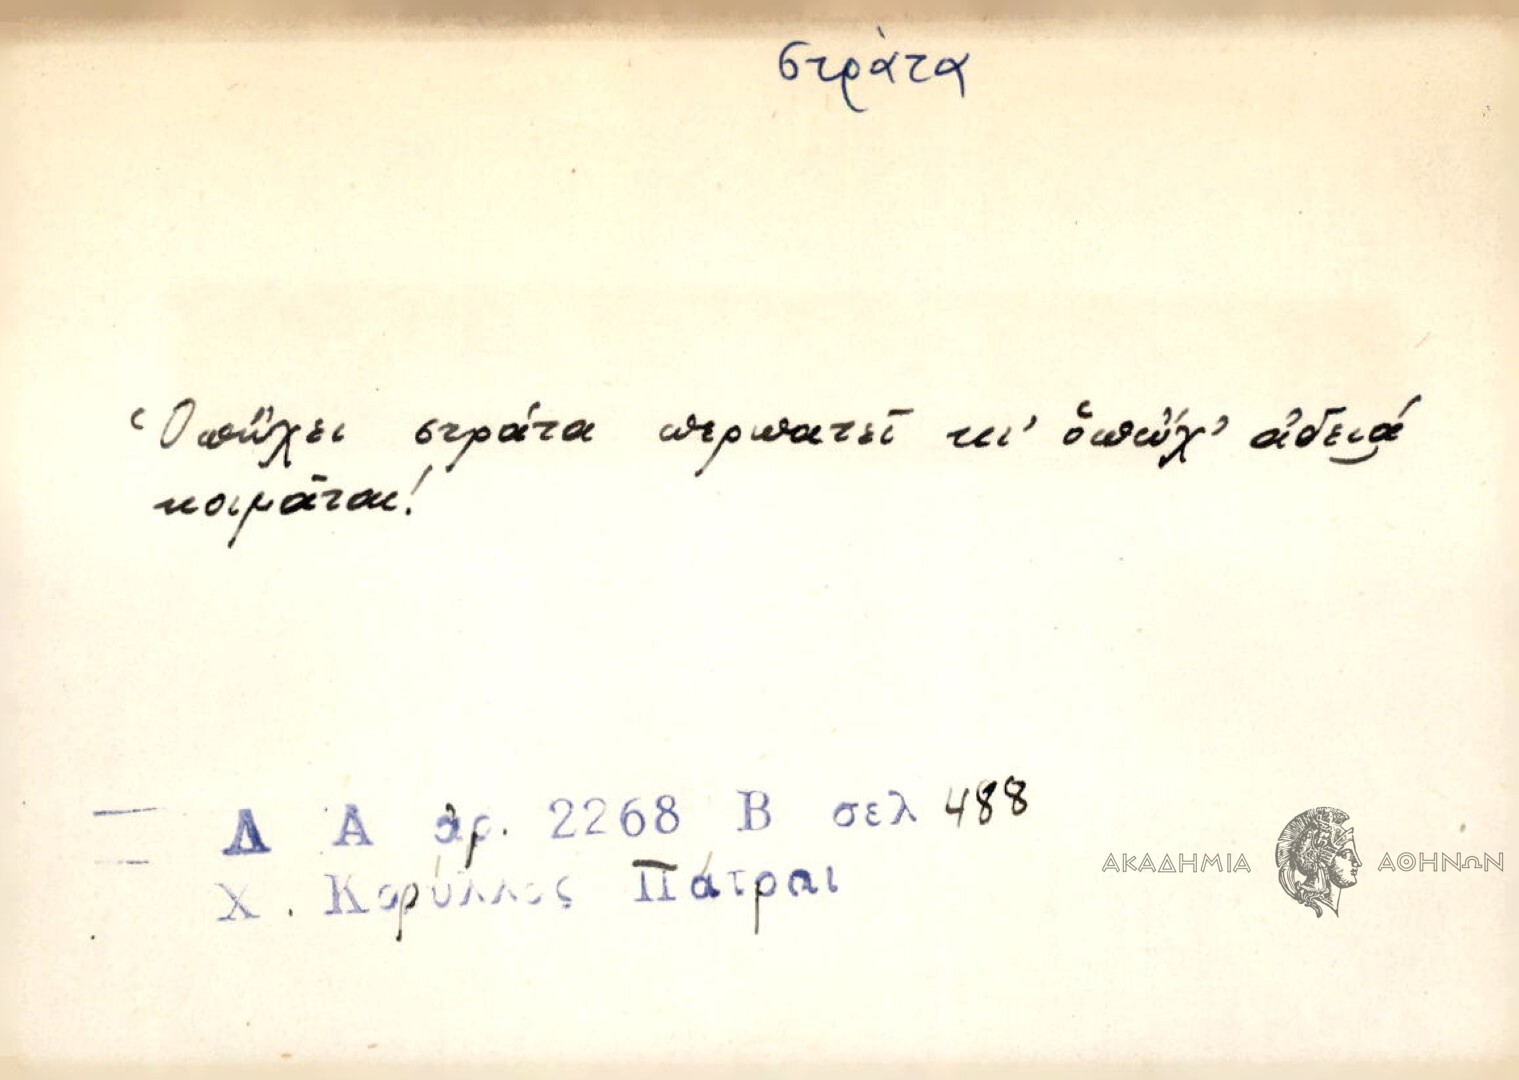 στράτα
Ὁπὤχει στράτα περπατεῖ κι' ὁπὤχ' ἀδειά
κοιμᾶται!
Λ Α ἀρ. 2268 Β σελ 488
Χ. Κορύλλος Πάτραι
ΑΚΑΔΗΜΙΑ ΑΘΗΝΩΝ